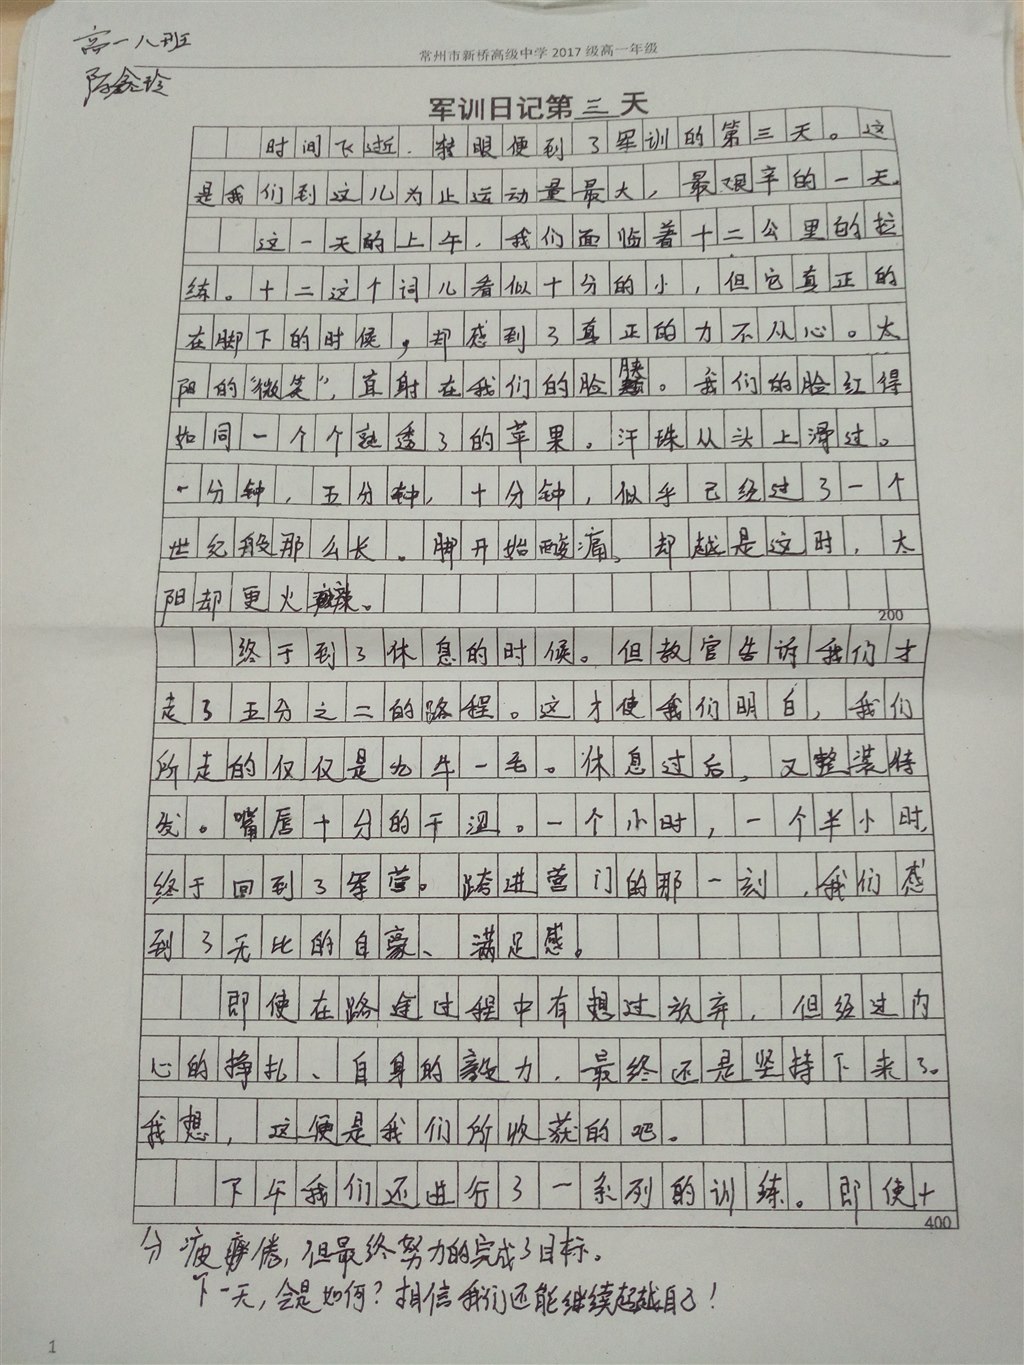 高一八班
陈鑫玲
常州市新桥高级中学2017级高一年级
军训日记第三天
时间飞逝.转眼便到了军训的第三天。这
是我们到这儿为止运动量最大，最艰辛的一天。
这一天的上午，我们面临着十二公里的拉
练。十二这个词儿看似十分的小，但它真正的
在脚下的时候，却感到了真正的力不从心。太
阳的“微笑”，直射在我们的脸颊。我们的脸红得
如同一个个熟透了的苹果。汗珠从头上滑过。
一分钟，五分钟，十分钟，似乎已经过了一个
世纪般那么长。脚开始酸痛，却越是这时，太
阳却更火辣。
200
终于到了休息的时候。但教官告诉我们才
走了五分之二的路程。这才使我们明白，我们
所走的仅仅是九牛一毛。休息过后，又整装待
发。嘴唇十分的干涩。一个小时，一个半小时，
终于回到了军营。跨进营门的那一刻，我们感
到了无比的自豪、满足感。
即使在路途过程中有想过放弃，但经过内
心的挣扎、自身的毅力，最终还是坚持下来了。
我想，这便是我们所收获的吧。
下午我们还进行了一系列的训练。即使十
400
分疲倦，但最终努力的完成了目标。
下一天，会是如何？相信我们还能继续超越自己！
1